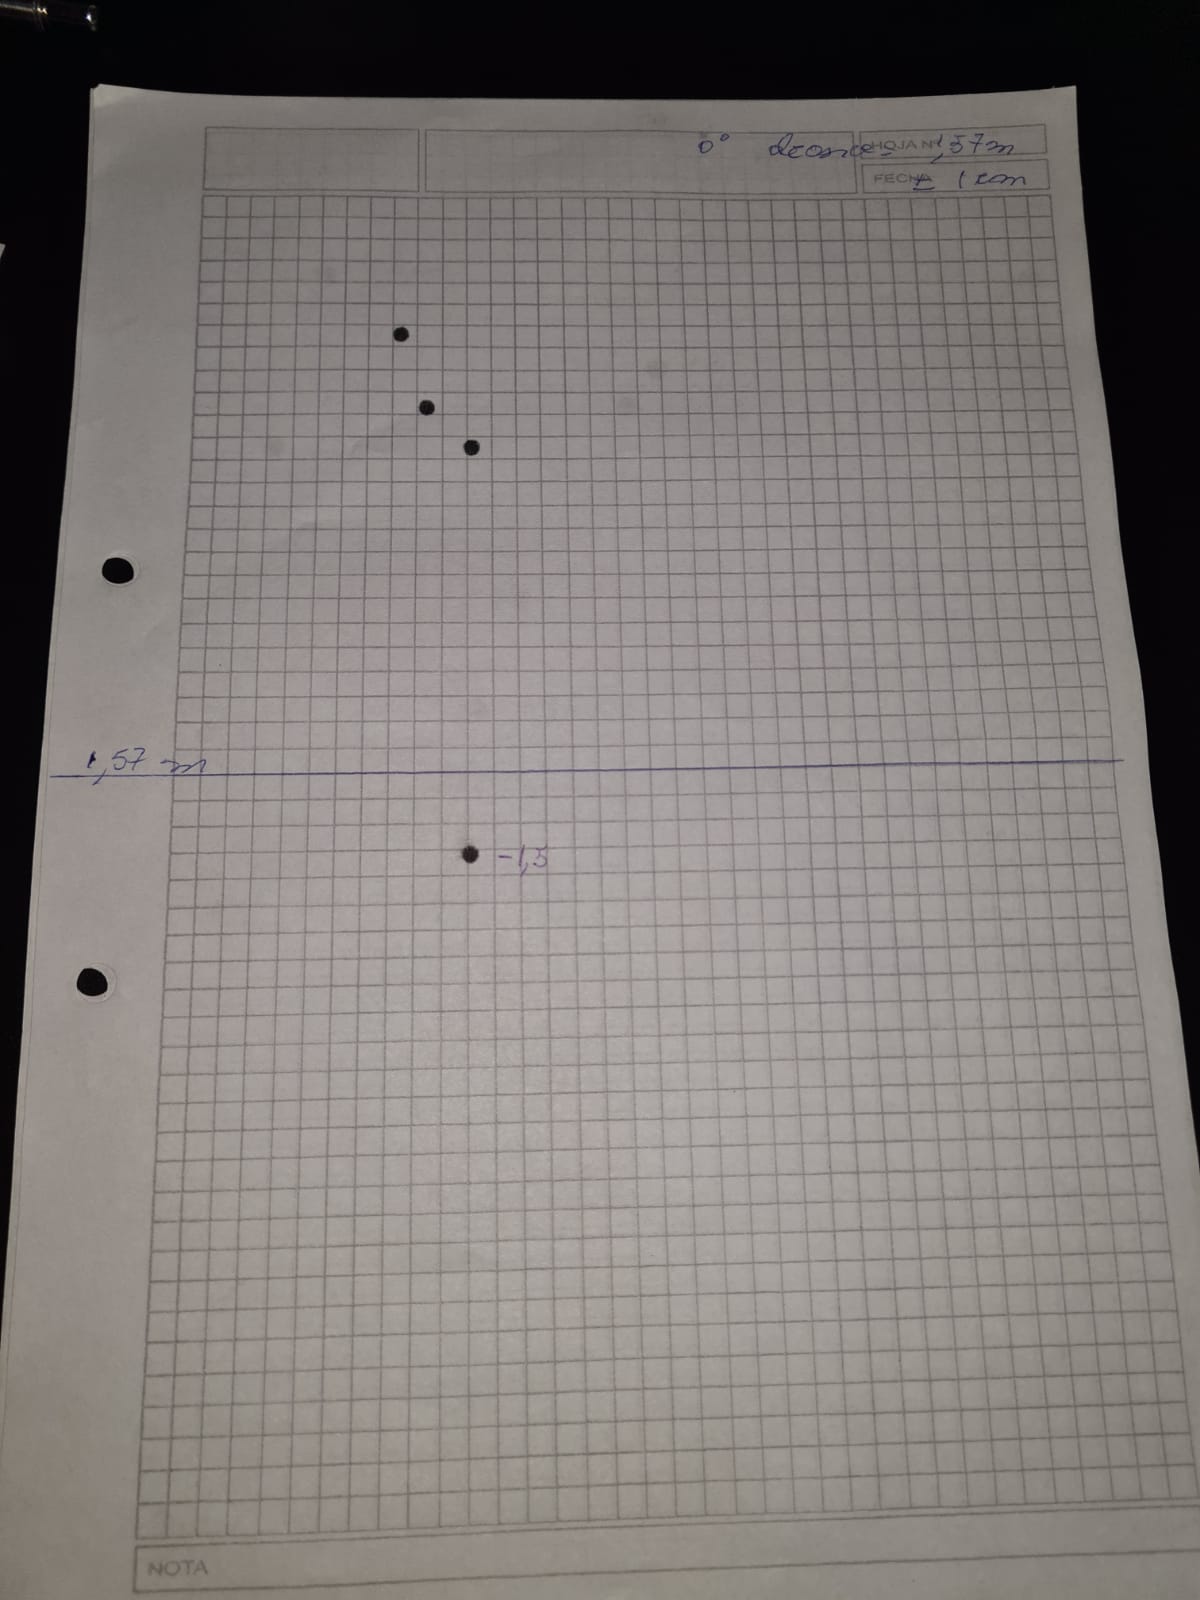 0° alcance 1,57m
HOJA Nº
FECHA
± 1 cm
1,57 m
-1,5
NOTA